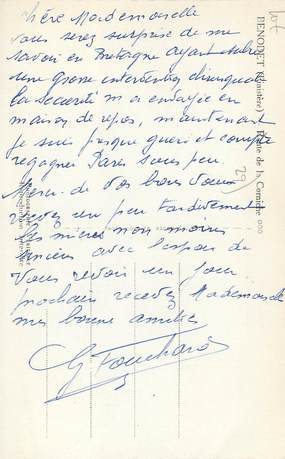 Chère Mademoiselle
Vous serez surprise de me
savoir en Bretagne ayant subie
une grosse intervention chirurgicale
la securité m a envoyée en
maison de repos, maintenant
je suis presque gueri et compte
regagner Paris sous peu.
Merci de vos bons voeux
recevez un peu tardivement
les miens non moins
sincères avec l'espoir de
vous revoir un jour
prochain recevez Mademoiselle
mes bonnes amitiés
G Fouchard
BENODET (Finistère) - Route de la Corniche
29